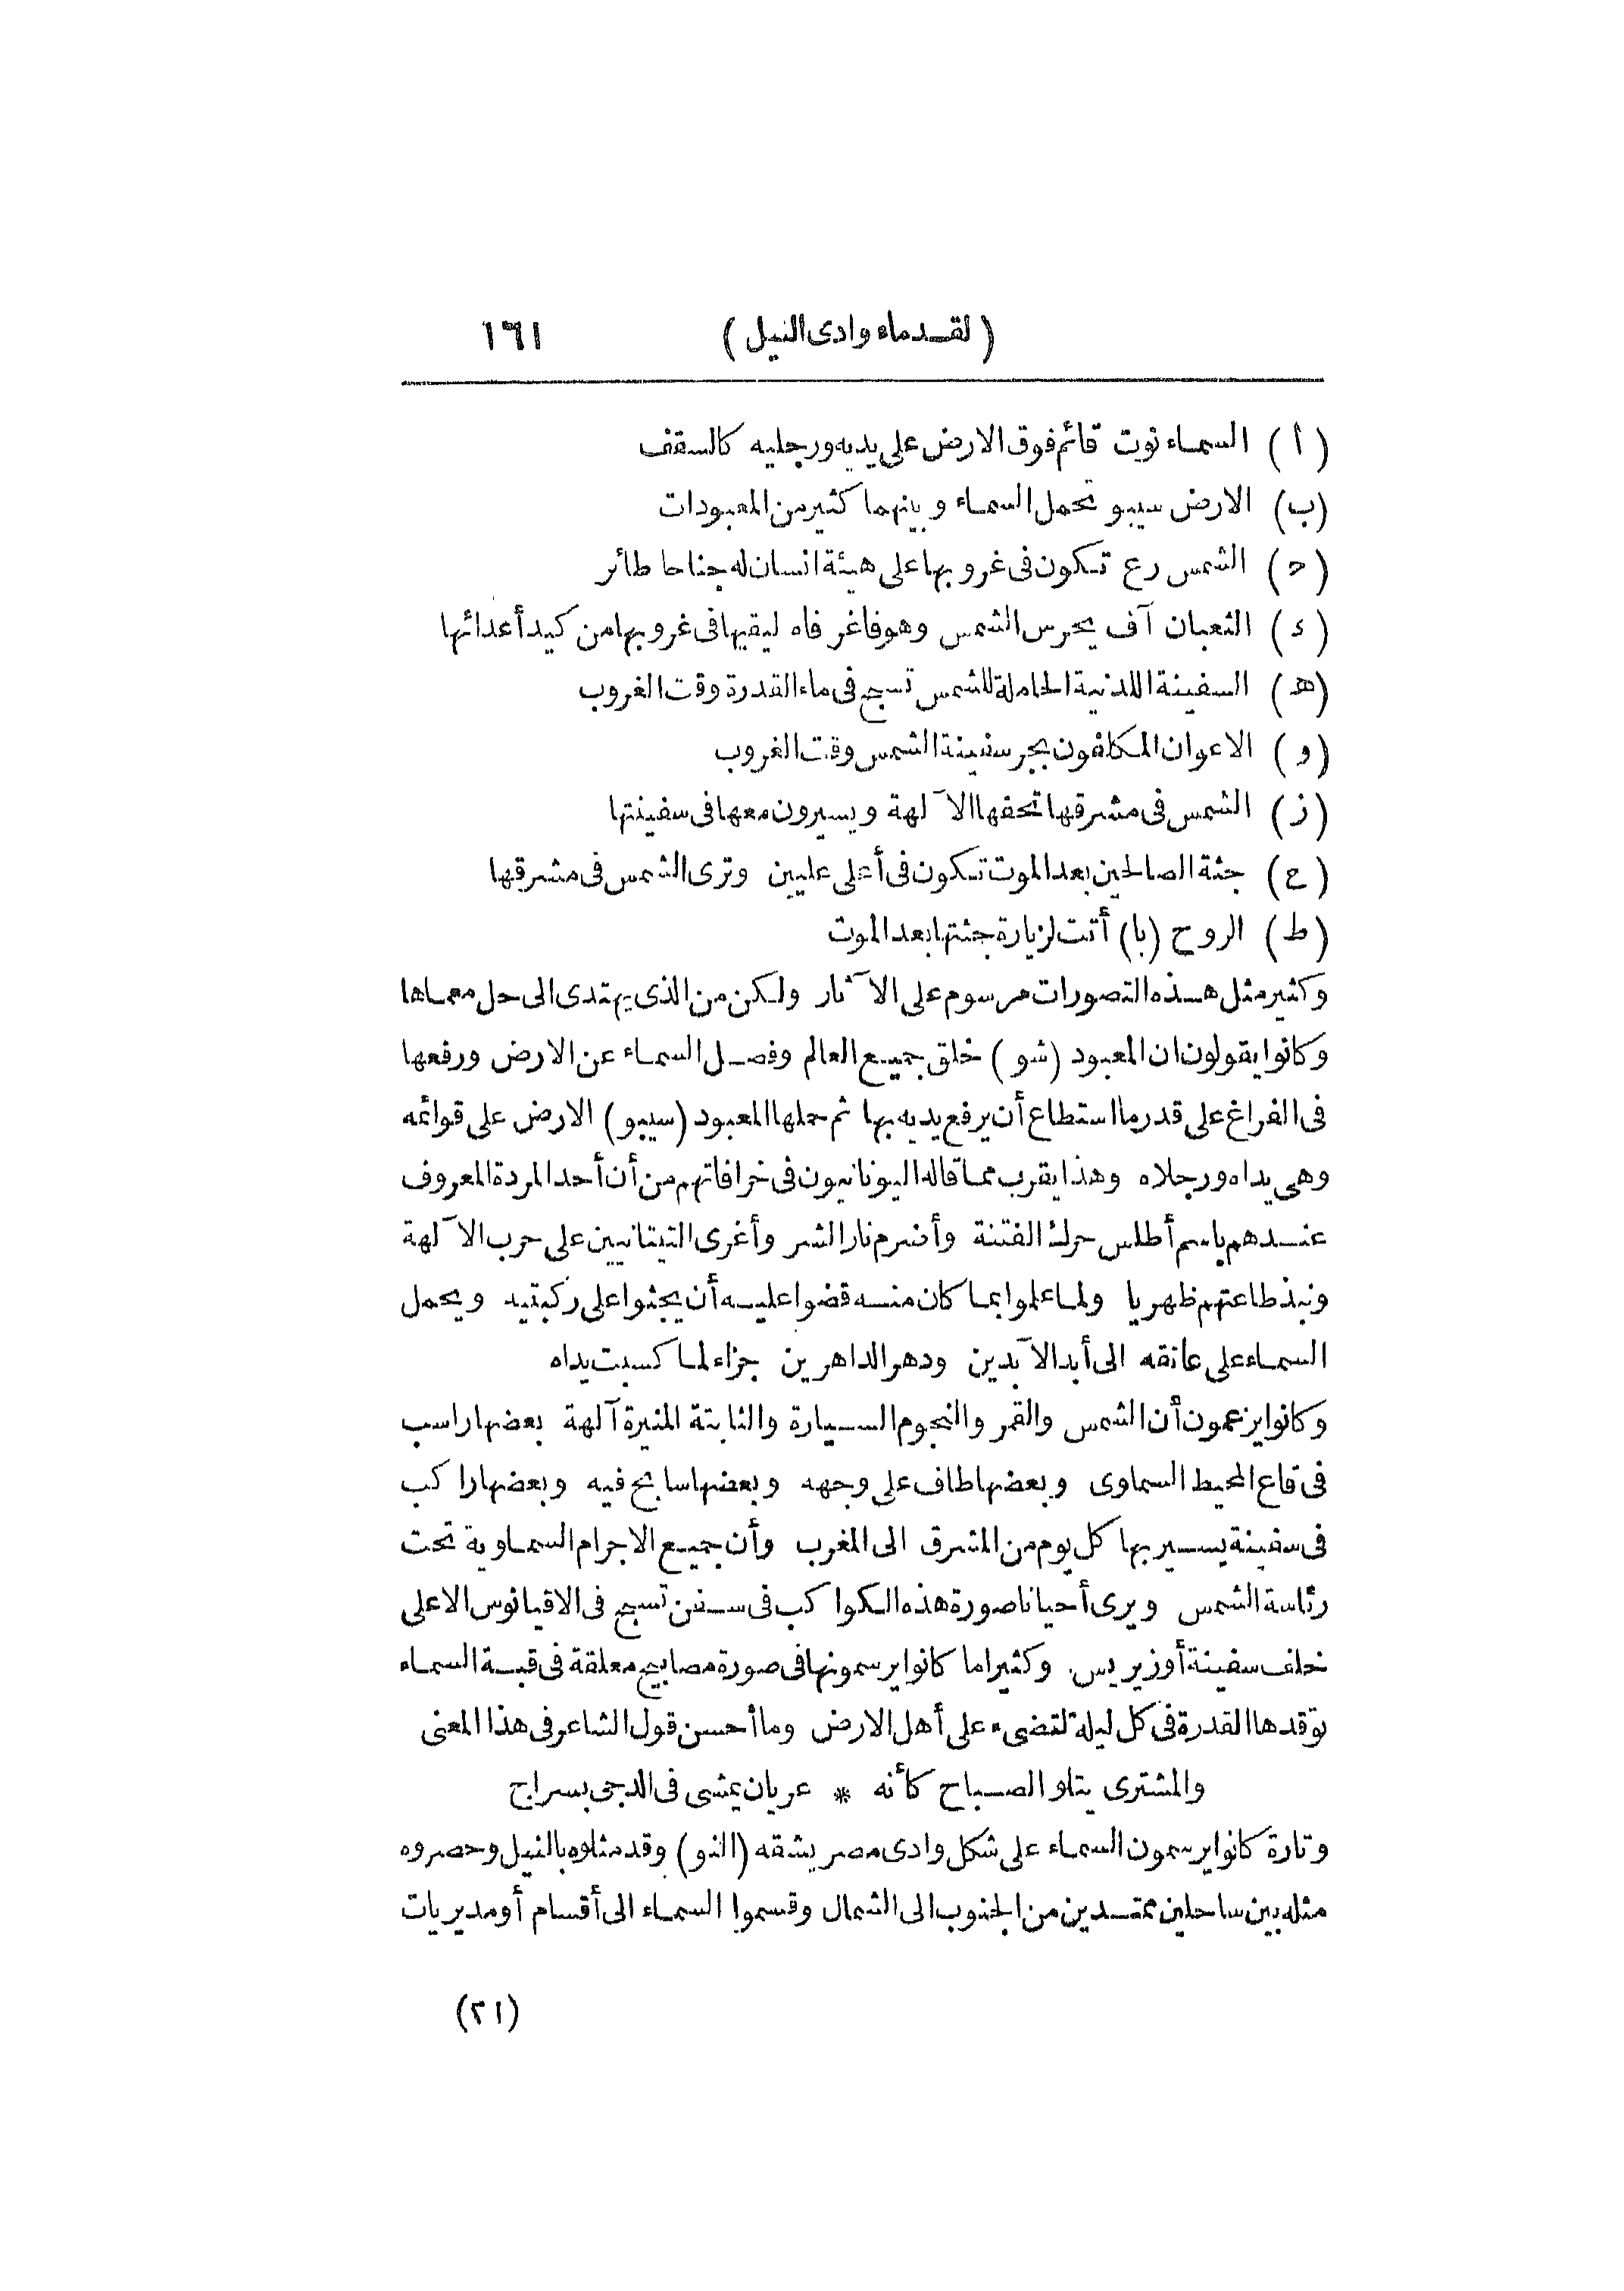 (لقدماء وادى النيل) ١٦١
(أ) السماء نوت قائم فوق الارض على يديه ورجليه كالسقف
(ب) الارض سيبو تحمل السماء وبينهما كثير من المعبودات
(ح) الشمس رع تكون فى غروبها على هيئة انسان له جناحا طائر
(ء) الثعبان آف يحرس الشمس وهو فاغر فاه ليقيها فى غروبها من كيد أعدائها
(ه) السفينة اللدنية الحاملة للشمس تسبح فى ماء القدرة وقت الغروب
(و) الاعوان المكلفون بجر سفينة الشمس وقت الغروب
(ز) الشمس فى مشرقها تحفها الآلهة ويسيرون معها فى سفينتها
(ع) جثة الصالحين بعد الموت تكون فى أعلى عليين وترى الشمس فى مشرقها
(ط) الروح (با) أتت لزيارة جثتها بعد الموت
وكثير مثل هذه التصورات مرسوم على الآثار ولكن من الذى يهتدى الى حل معماها
وكانوا يقولون ان المعبود (شو) خلق جميع العالم وفصل السماء عن الارض ورفعها
فى الفراغ على قدر ما استطاع أن يرفع يديه بها ثم حملها المعبود (سيبو) الارض على قوائمه
وهى يداه ورجلاه وهذا يقرب مما قاله اليونانيون فى خرافاتهم من أن أحد المردة المعروف
عندهم باسم أطلس حرك الفتنة وأضرم نار الشر وأغرى التيتانيين على حرب الآلهة
ونبذ طاعتهم ظهريا ولما علموا بما كان منه قضوا عليه أن يجثوا على ركبتيه ويحمل
السماء على عاتقه الى أبد الآبدين ودهر الداهرين جزاء لما كسبت يداه
وكانوا يزعمون أن الشمس والقمر والنجوم السيارة والثابتة المنيرة آلهة بعضها راسب
فى قاع المحيط السماوى وبعضها طاف على وجهه وبعضها سابح فيه وبعضها راكب
فى سفينة يسير بها كل يوم من المشرق الى المغرب وأن جميع الاجرام السماوية تحت
رئاسة الشمس ويرى أحيانا صورة هذه الكواكب فى سفن تسبح فى الاقيانوس الاعلى
خلف سفينة أوزيريس. وكثيرا ما كانوا يرسمونها فى صورة مصابيح معلقة فى قبة السماء
توقدها القدرة فى كل ليلة لتضىء على أهل الارض وما أحسن قول الشاعر فى هذا المعنى
والمشترى يتلو الصباح كأنه * عريان يمشى فى الدجى بسراج
وتارة كانوا يرسمون السماء على شكل وادى مصر يشقه (النو) وقد مثلوه بالنيل وحصروه
مثله بين ساحلين ممتدين من الجنوب الى الشمال وقسموا السماء الى أقسام أو مديريات
(٢١)